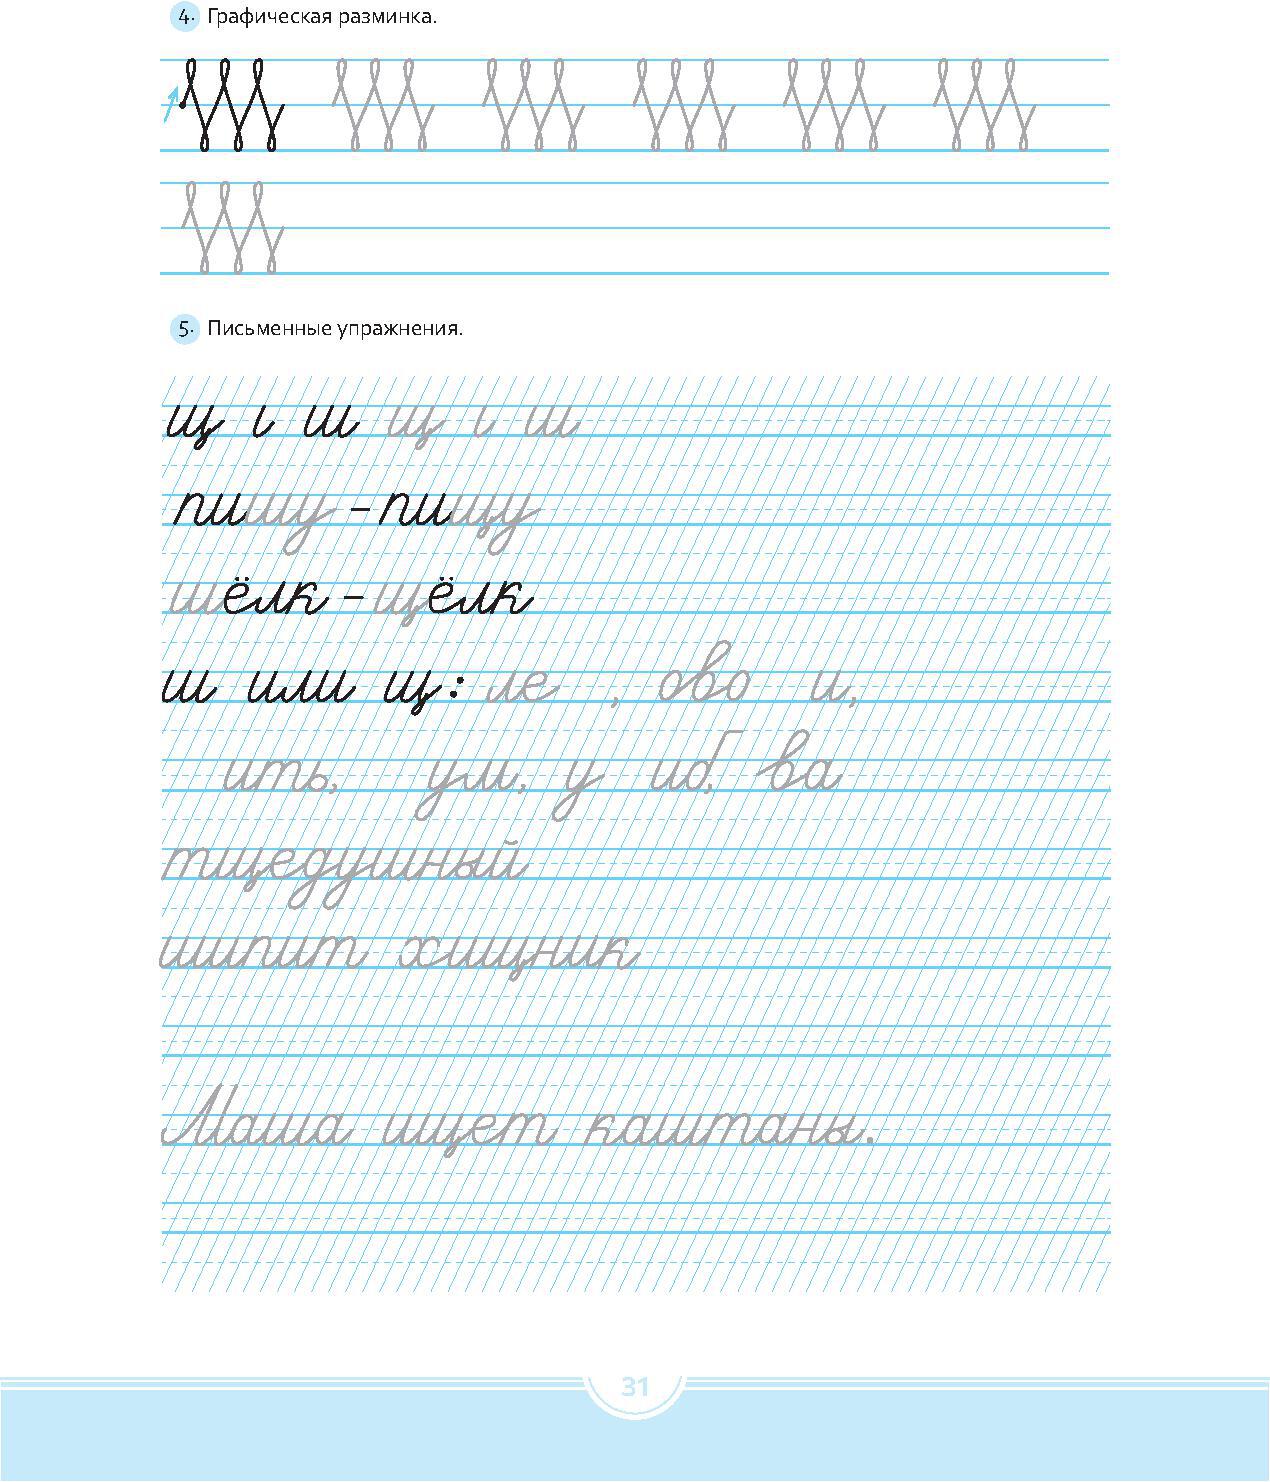 4. Графическая разминка.
5. Письменные упражнения.
щ ι ш щ ι ш
пишу – пищу
шёлк – щёлк
ш или щ: ле , ово и,
ить, ум, у иб, ва
тщедушный
шипит хищник
Маша ищет каштаны.
31